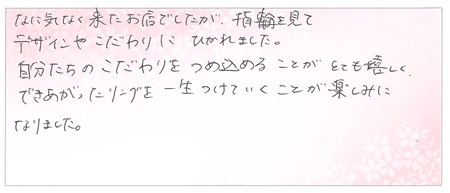 なに気なく来たお店でしたが、指輪を見て
デザインやこだわりにひかれました。
自分たちのこだわりをつめ込めることがとても嬉しく、
できあがったリングを一生つけていくことが楽しみに
なりました。